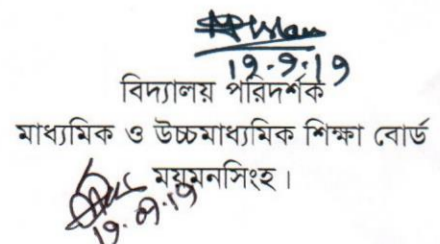 19-9-19
বিদ্যালয় পরিদর্শক
মাধ্যমিক ও উচ্চমাধ্যমিক শিক্ষা বোর্ড
ময়মনসিংহ।
19.09.19